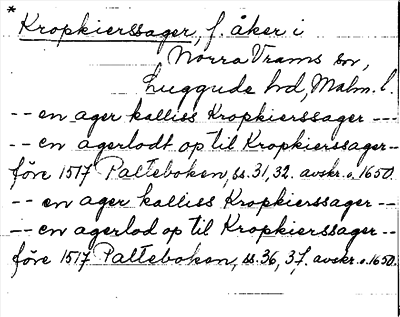 * Kropkierssager, f. åker i
Norra Vrams sn,
Luggude hd, Malm. l.
-- en ager kalliss Kropkierssager ---
-- en agerlodt op til Kropkierssager--
före 1517 Palteboken, ss. 31, 32. avskr. o. 1650.
-- en ager kalliss Kropkierssager --
-- en agerlod op til Kropkierssager --
före 1517 Palteboken, ss. 36, 37. avskr. o. 1650.